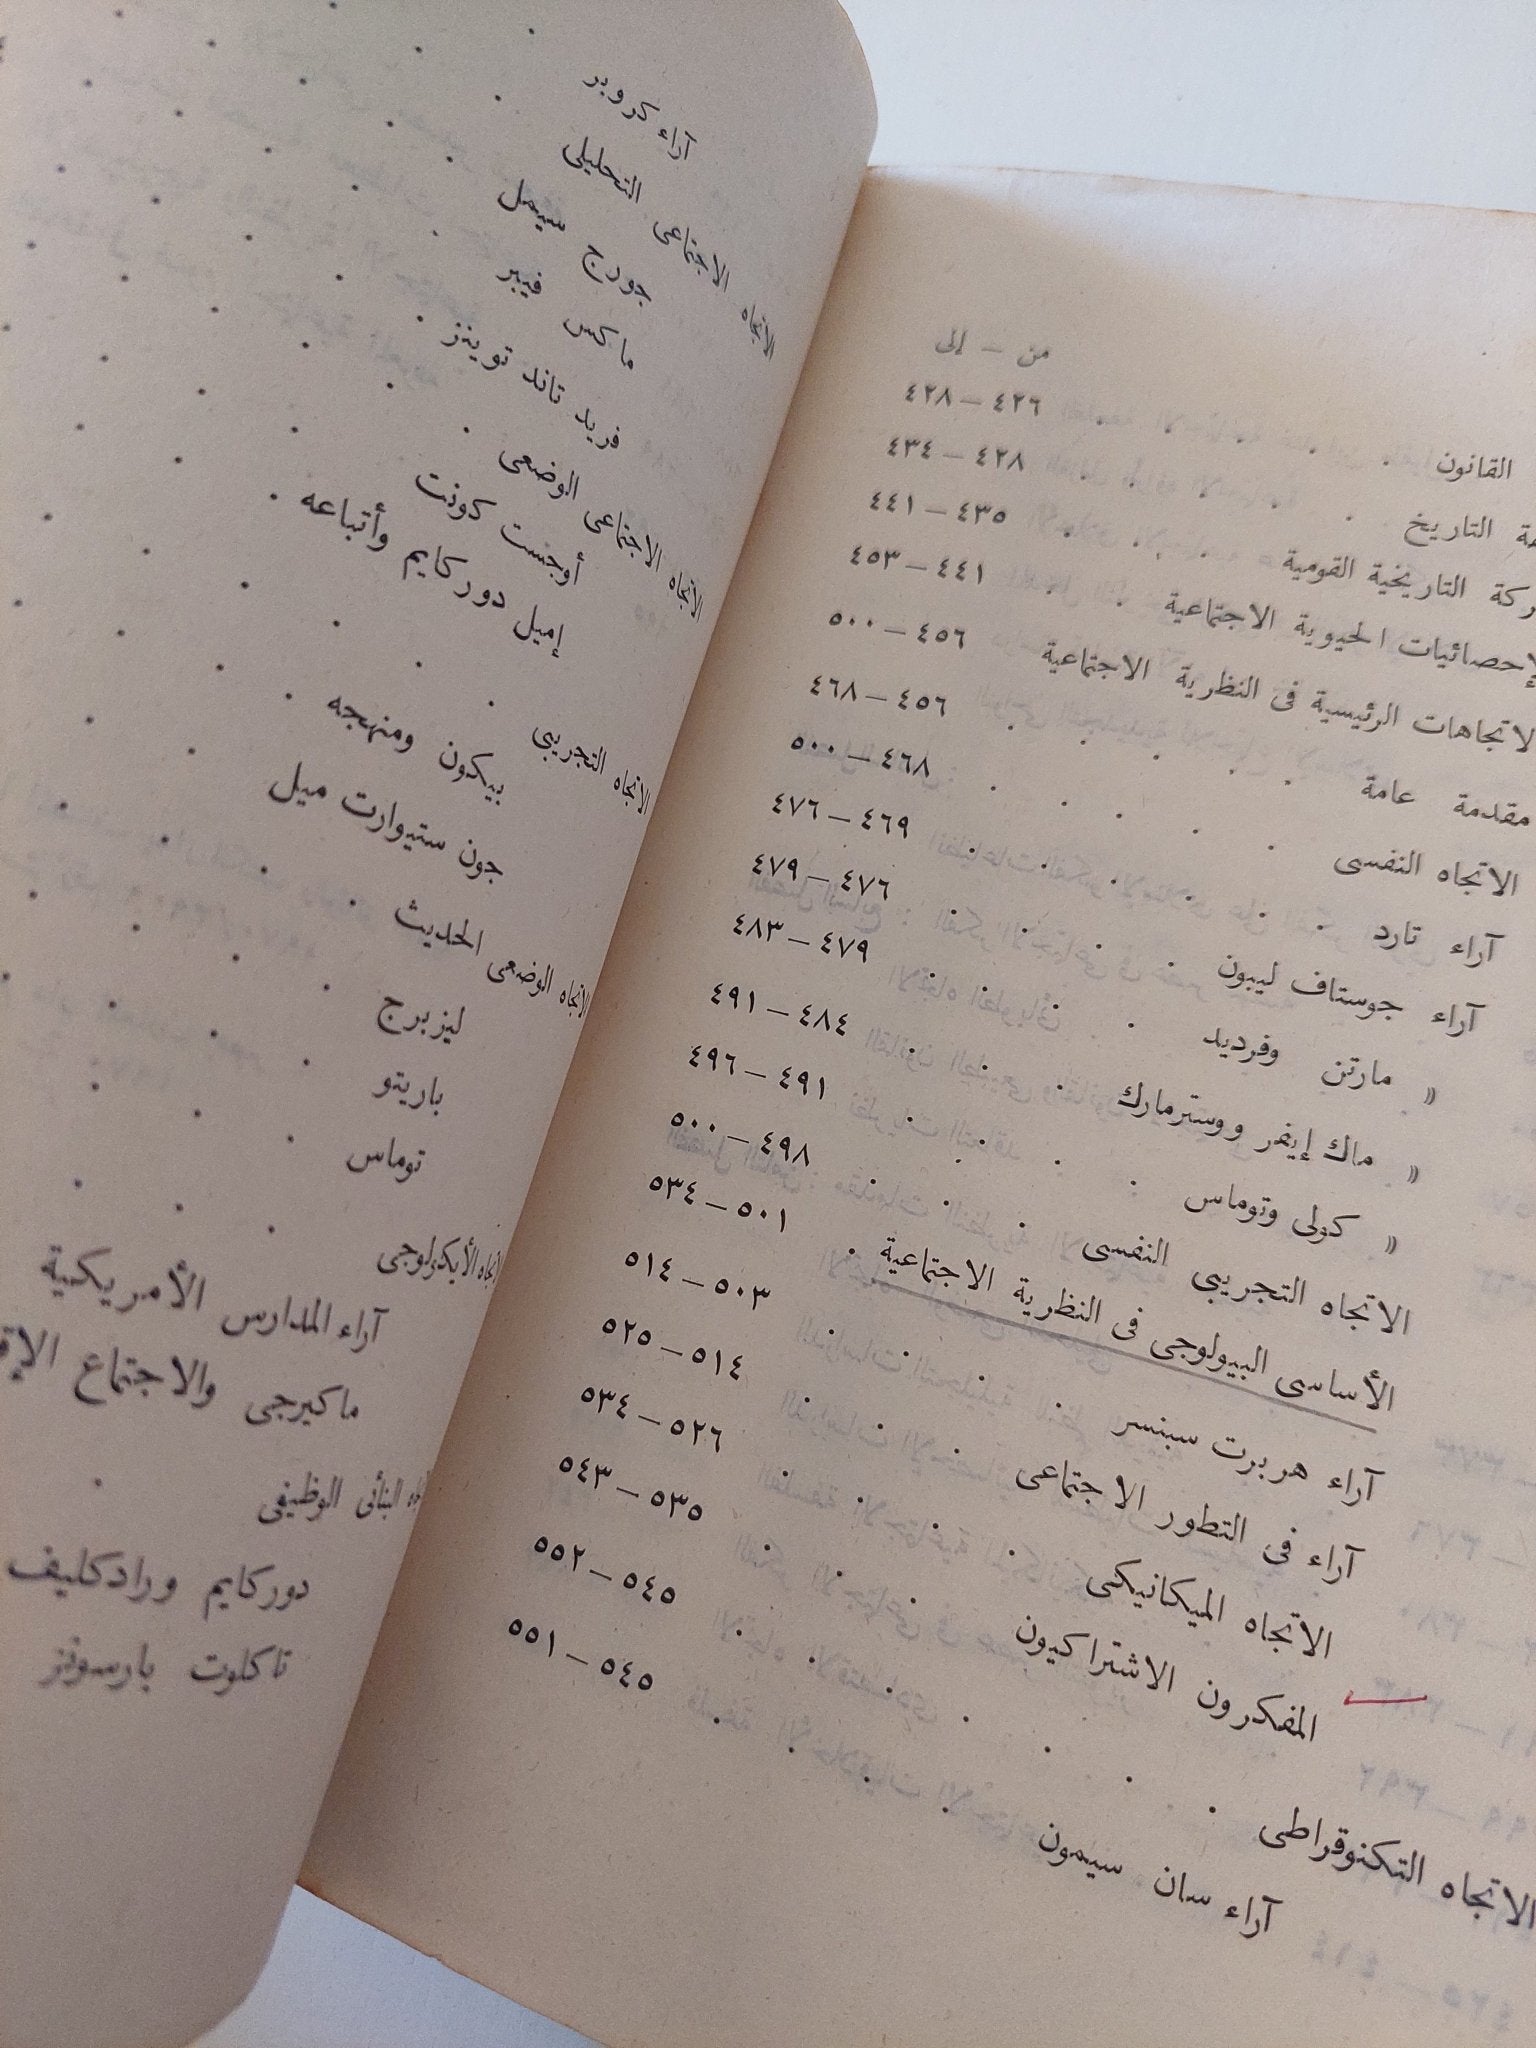 من – إلى
القانون ٤٢٦ – ٤٢٨
التاريخ ٤٢٨ – ٤٣٤
التاريخية القومية ٤٣٥ – ٤٤١
الإحصائيات الحيوية الاجتماعية ٤٤١ – ٤٥٣
الاتجاهات الرئيسية فى النظرية الاجتماعية ٤٥٦ – ٥٠٠
مقدمة عامة ٤٥٦ – ٤٦٨
الاتجاه النفسى ٤٦٨ – ٥٠٠
آراء تارد ٤٦٩ – ٤٧٦
آراء جوستاف ليبون ٤٧٦ – ٤٧٩
» مارتن وفرديد ٤٧٩ – ٤٨٣
» ماك إيفر ووسترمارك ٤٨٤ – ٤٩١
» كولى وتوماس ٤٩١ – ٤٩٦
الاتجاه التجريبى النفسى ٤٩٨ – ٥٠٠
الأساسى البيولوجى فى النظرية الاجتماعية ٥٠١ – ٥٣٤
آراء هربرت سبنسر ٥٠٣ – ٥١٤
آراء فى التطور الاجتماعى ٥١٤ – ٥٢٥
الاتجاه الميكانيكى ٥٢٦ – ٥٣٤
المفكرون الاشتراكيون ٥٣٥ – ٥٤٣
الاتجاه التكنوقراطى ٥٤٥ – ٥٥٢
آراء سان سيمون ٥٤٥ – ٥٥١
آراء كروبر
الاتجاه الاجتماعى التحليلى
جورج سيمل
ماكس فيبر
فريد تاند توينز
الاتجاه الاجتماعى الوضعى
أوجست كونت
إميل دوركايم وأتباعه
الاتجاه التجريبى
بيكون ومنهجه
جون ستيوارت ميل
الاتجاه الوضعى الحديث
ليزبرج
باريتو
توماس
اتجاه الأيكولوجى
آراء المدارس الأمريكية
ماكيرجى والاجتماع
البنائى الوظيفى
دوركايم ورادكليف
تاكلوت بارسونز